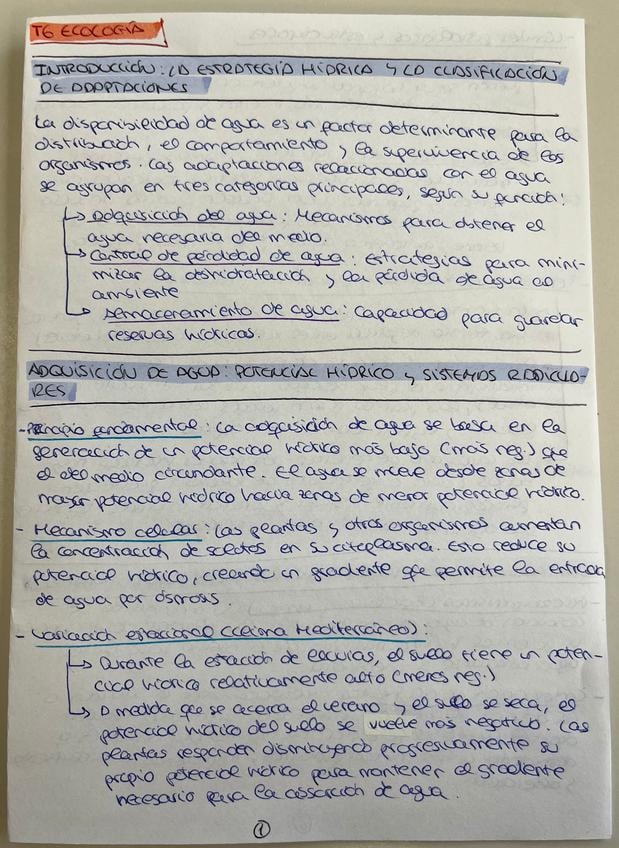 T6 ECOLOGÍA
INTRODUCCIÓN: LA ESTRATEGIA HÍDRICA Y LA CLASIFICACIÓN
DE ADAPTACIONES
La disponibilidad de agua es un factor determinante para la
distribución, el comportamiento y la supervivencia de los
organismos. Las adaptaciones relacionadas con el agua
se agrupan en tres categorías principales, según su función:
↳ Adquisición del agua: Mecanismos para obtener el
agua necesaria del medio.
↳ Control de pérdidad de agua: Estrategias para mini-
mizar la deshidratación y la pérdida de agua al
ambiente
↳ Almaceramiento de agua: Capacidad para guardar
reservas hídricas.
ADQUISICIÓN DE AGUA: POTENCIAL HÍDRICO Y SISTEMAS RADICULA-
RES
- Principio fundamental: La adquisición de agua se basa en la
generación de un potencial hídrico más bajo (más neg.) que
el del medio circundante. El agua se mueve desde zonas de
mayor potencial hídrico hacia zonas de menor potencial hídrico.
- Mecanismo celular: Las plantas y otros organismos aumentan
la concentración de solutos en su citoplasma. Esto reduce su
potencial hídrico, creando un gradiente que permite la entrada
de agua por ósmosis.
- Variación estacional (clima Mediterráneo):
↳ Durante la estación de lluvias, el suelo tiene un poten-
cial hídrico relativamente alto (menos neg.)
↳ A medida que se acerca el verano y el suelo se seca, el
potencial hídrico del suelo se vuelve más negativo. Las
plantas responden disminuyendo progresivamente su
propio potencial hídrico para mantener el gradiente
necesario para la absorción de agua.
1